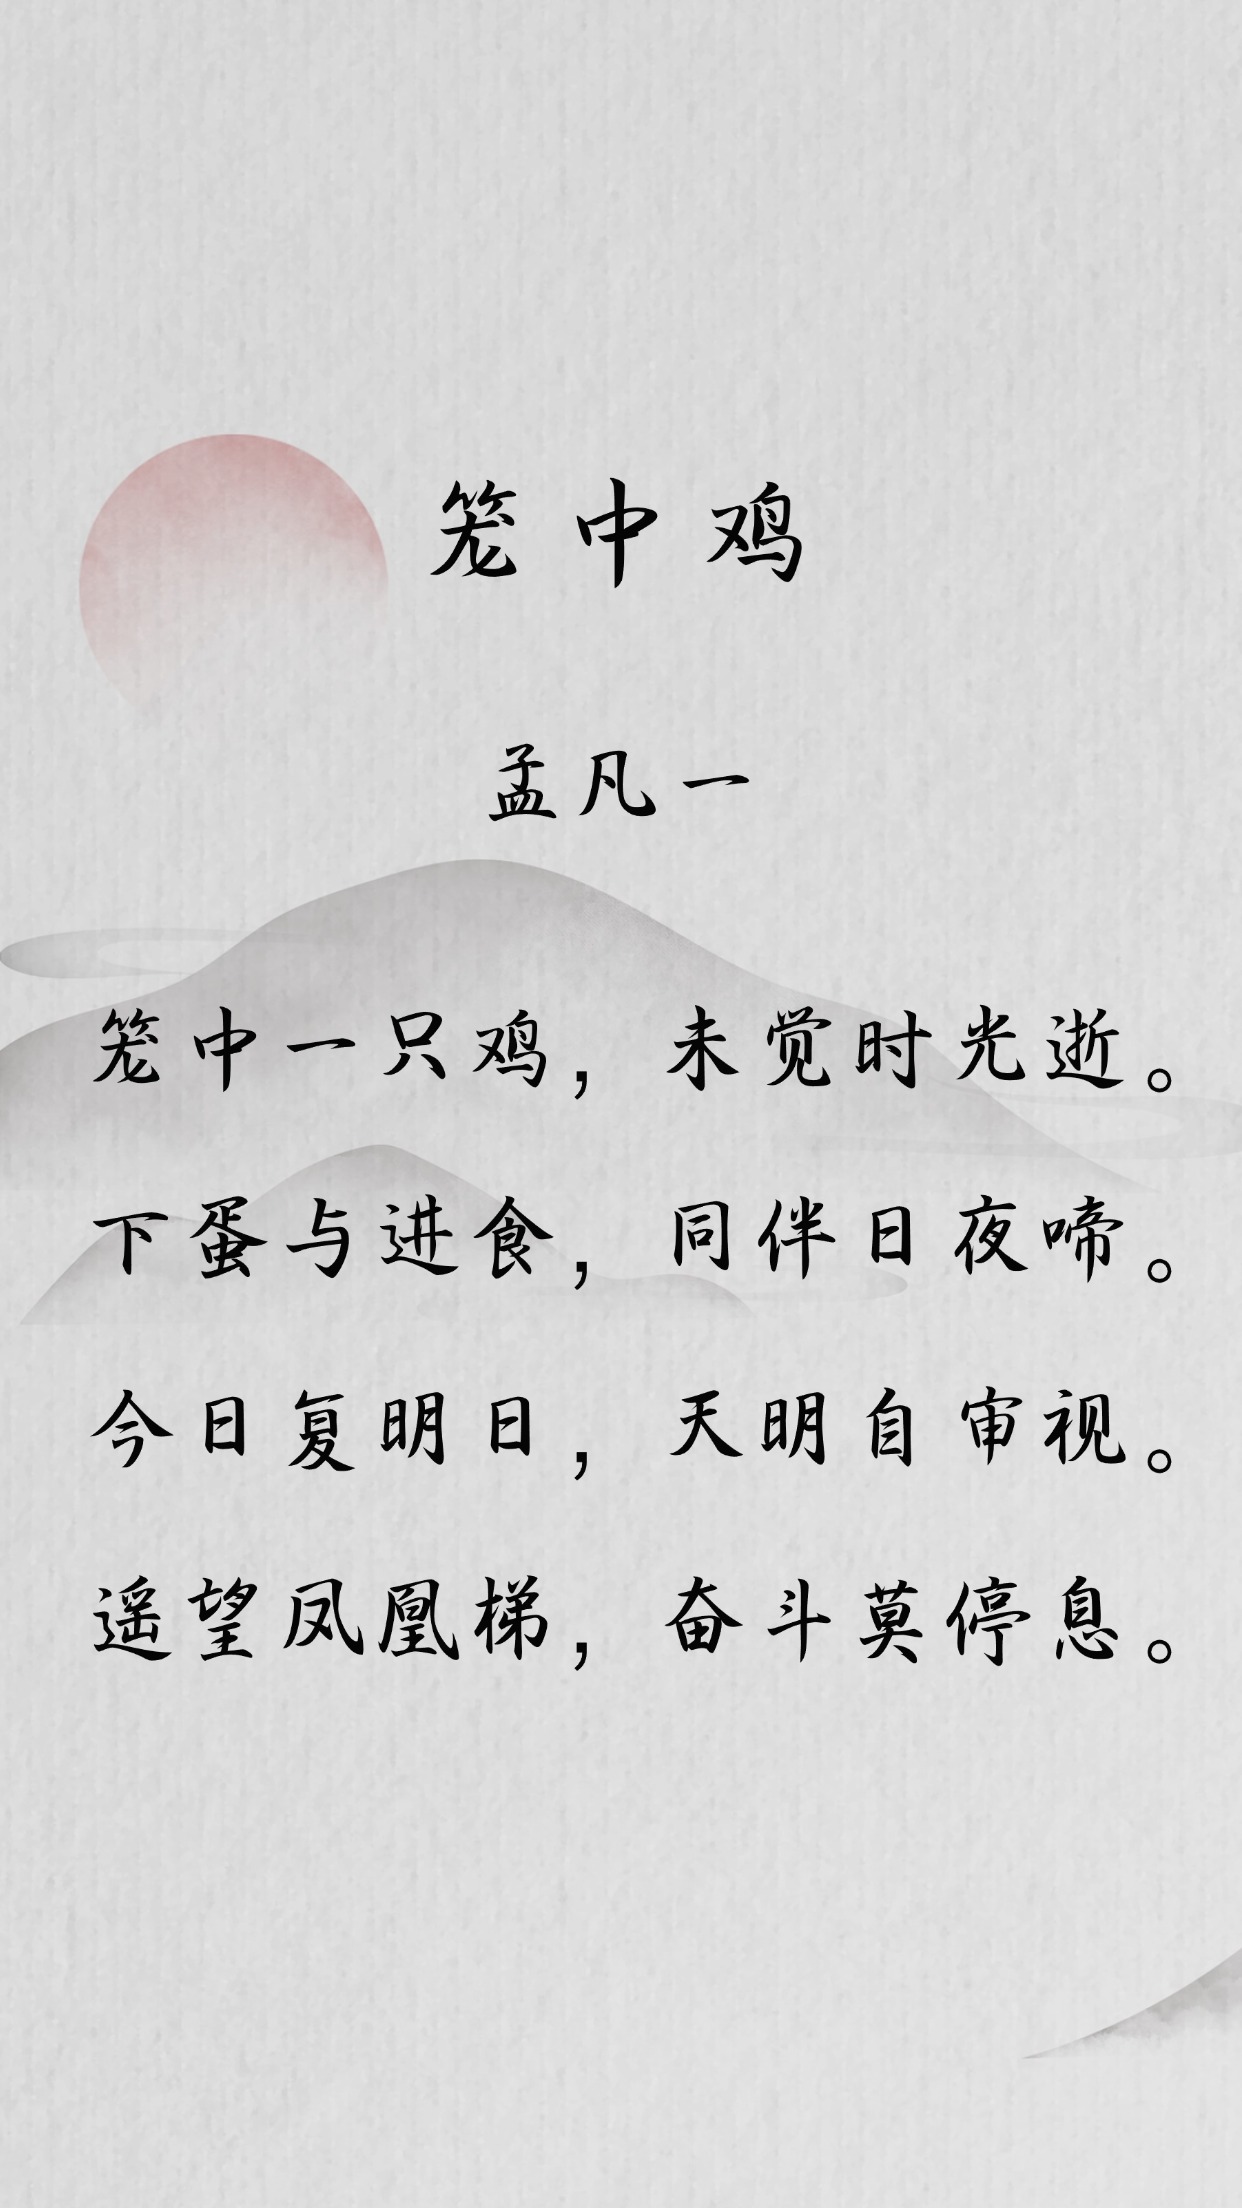 笼中鸡
孟凡一
笼中一只鸡，未觉时光逝。
下蛋与进食，同伴日夜啼。
今日复明日，天明自审视。
遥望凤凰梯，奋斗莫停息。